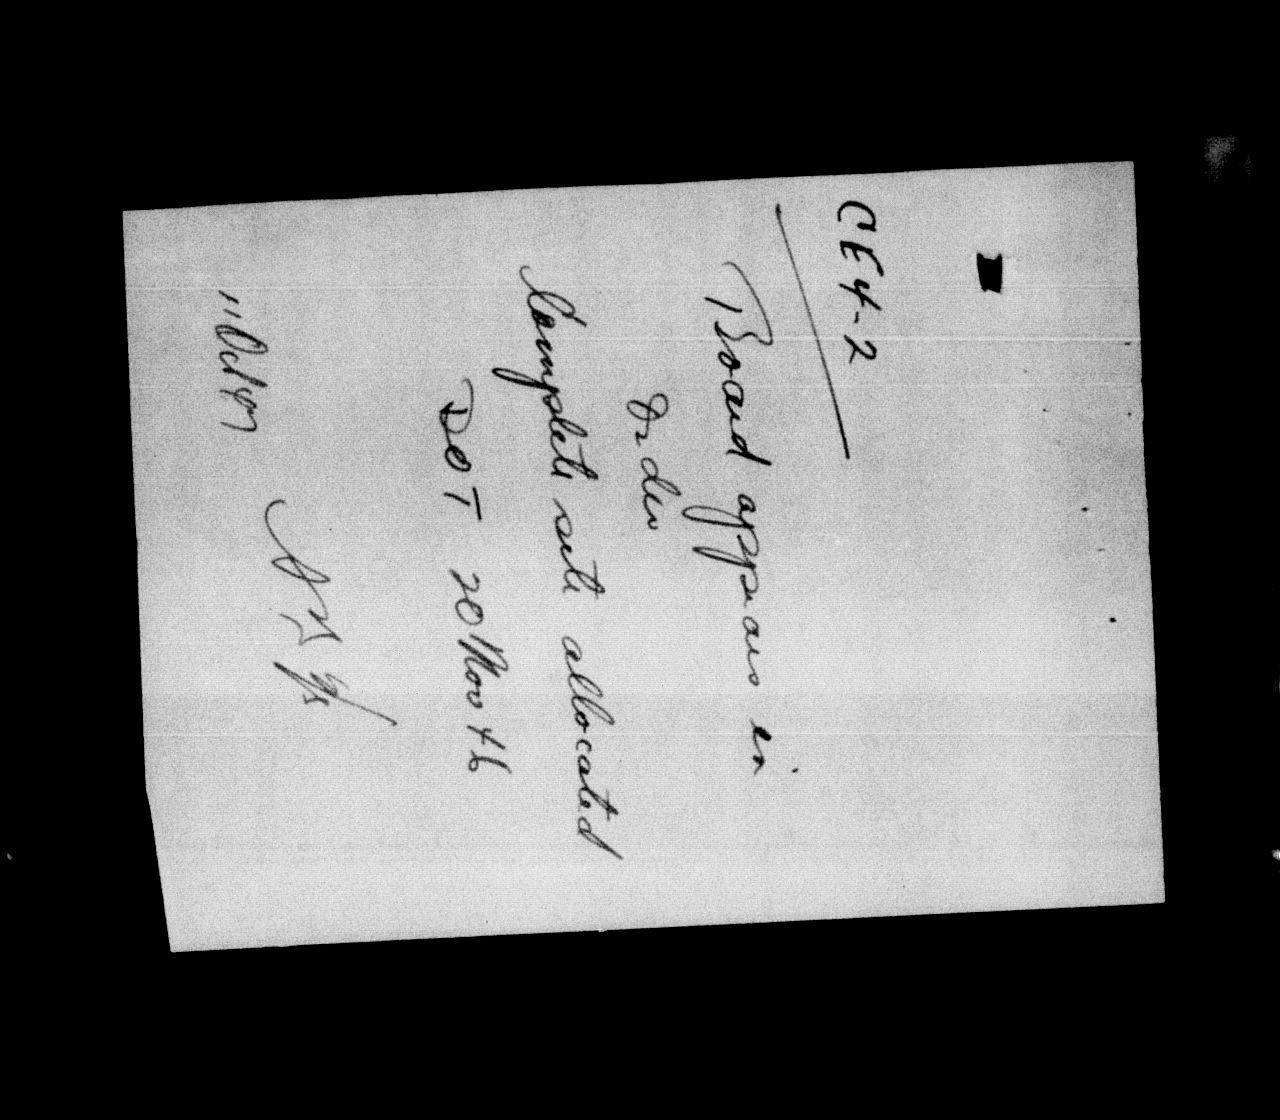 CE4-2
Board appears in
Order
Complete set allocated
DOT 20 Nov 46
11 Oct 47